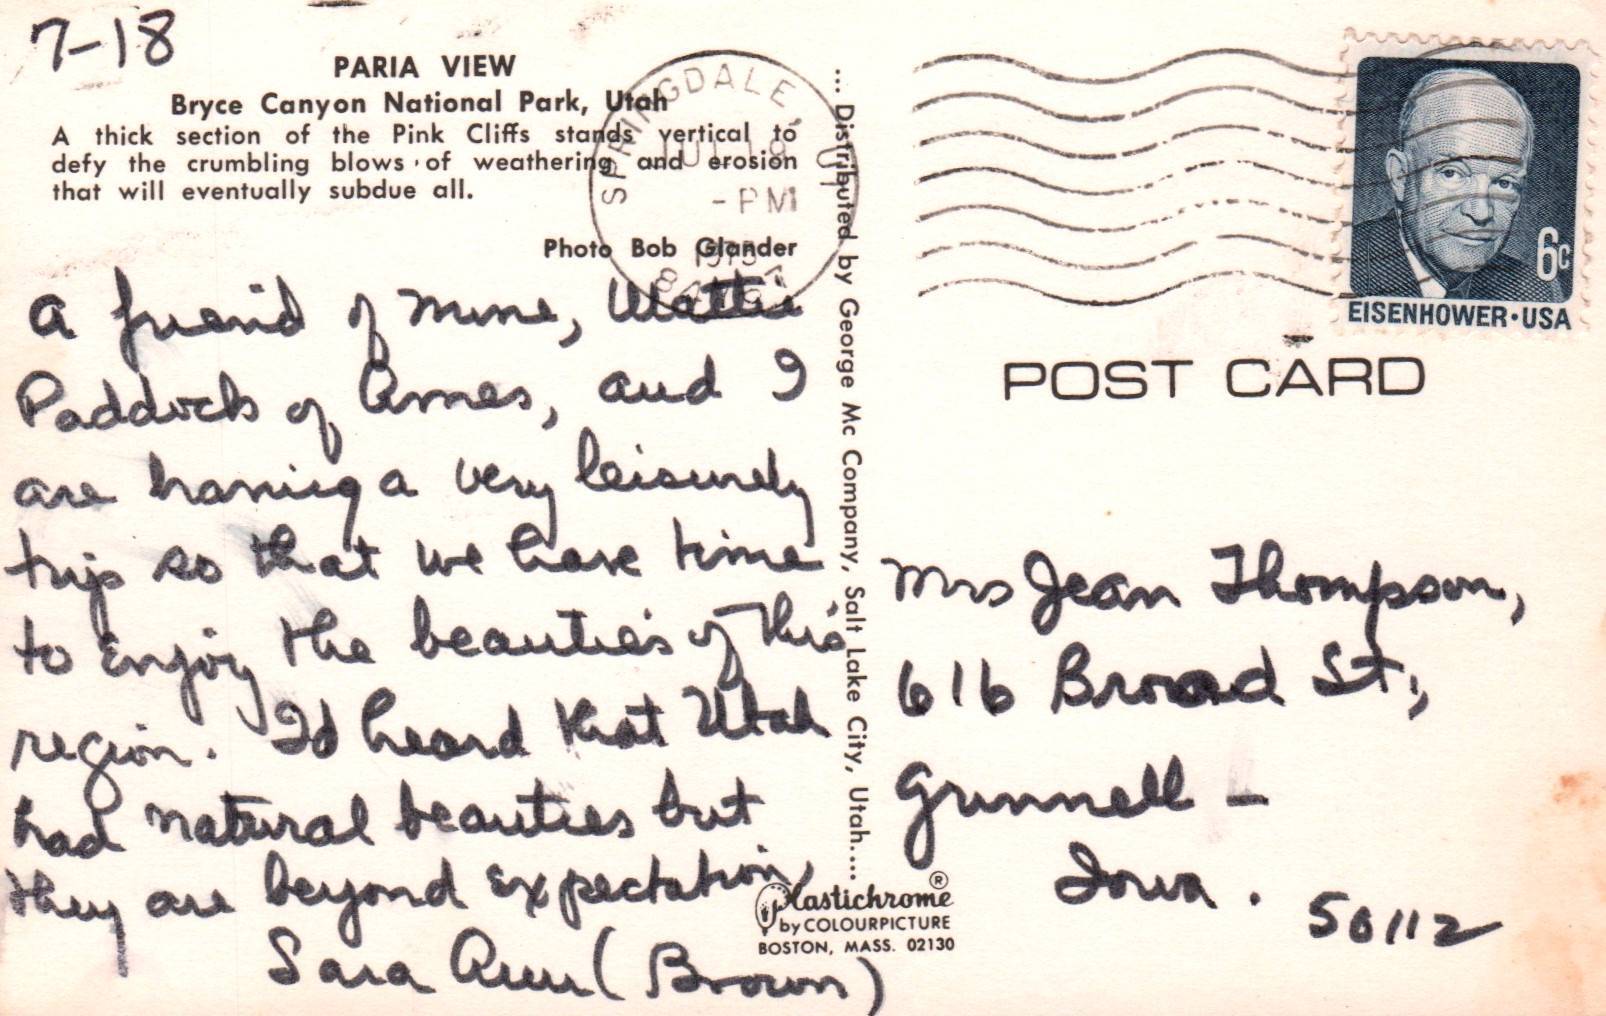 7-18
PARIA VIEW
Bryce Canyon National Park, Utah
A thick section of the Pink Cliffs stands vertical to
defy the crumbling blows of weathering and erosion
that will eventually subdue all.
Photo Bob Glander
A friend of mine,
Paddock of Ames, and I
are having a very leisurely
trip so that we have time
to enjoy the beauties of this
region. I'd heard that Utah
had natural beauties but
they are beyond expectation,
Sara Ann (Brown)
... Distributed by George Mc Company, Salt Lake City, Utah....
SPRINGDALE, UT
JUL 18
-PM
EISENHOWER·USA
6c
POST CARD
Mrs Jean Thompson,
616 Broad St.,
Grinnell -
Iowa. 50112
Plastichrome ®
by COLOURPICTURE
BOSTON, MASS. 02130